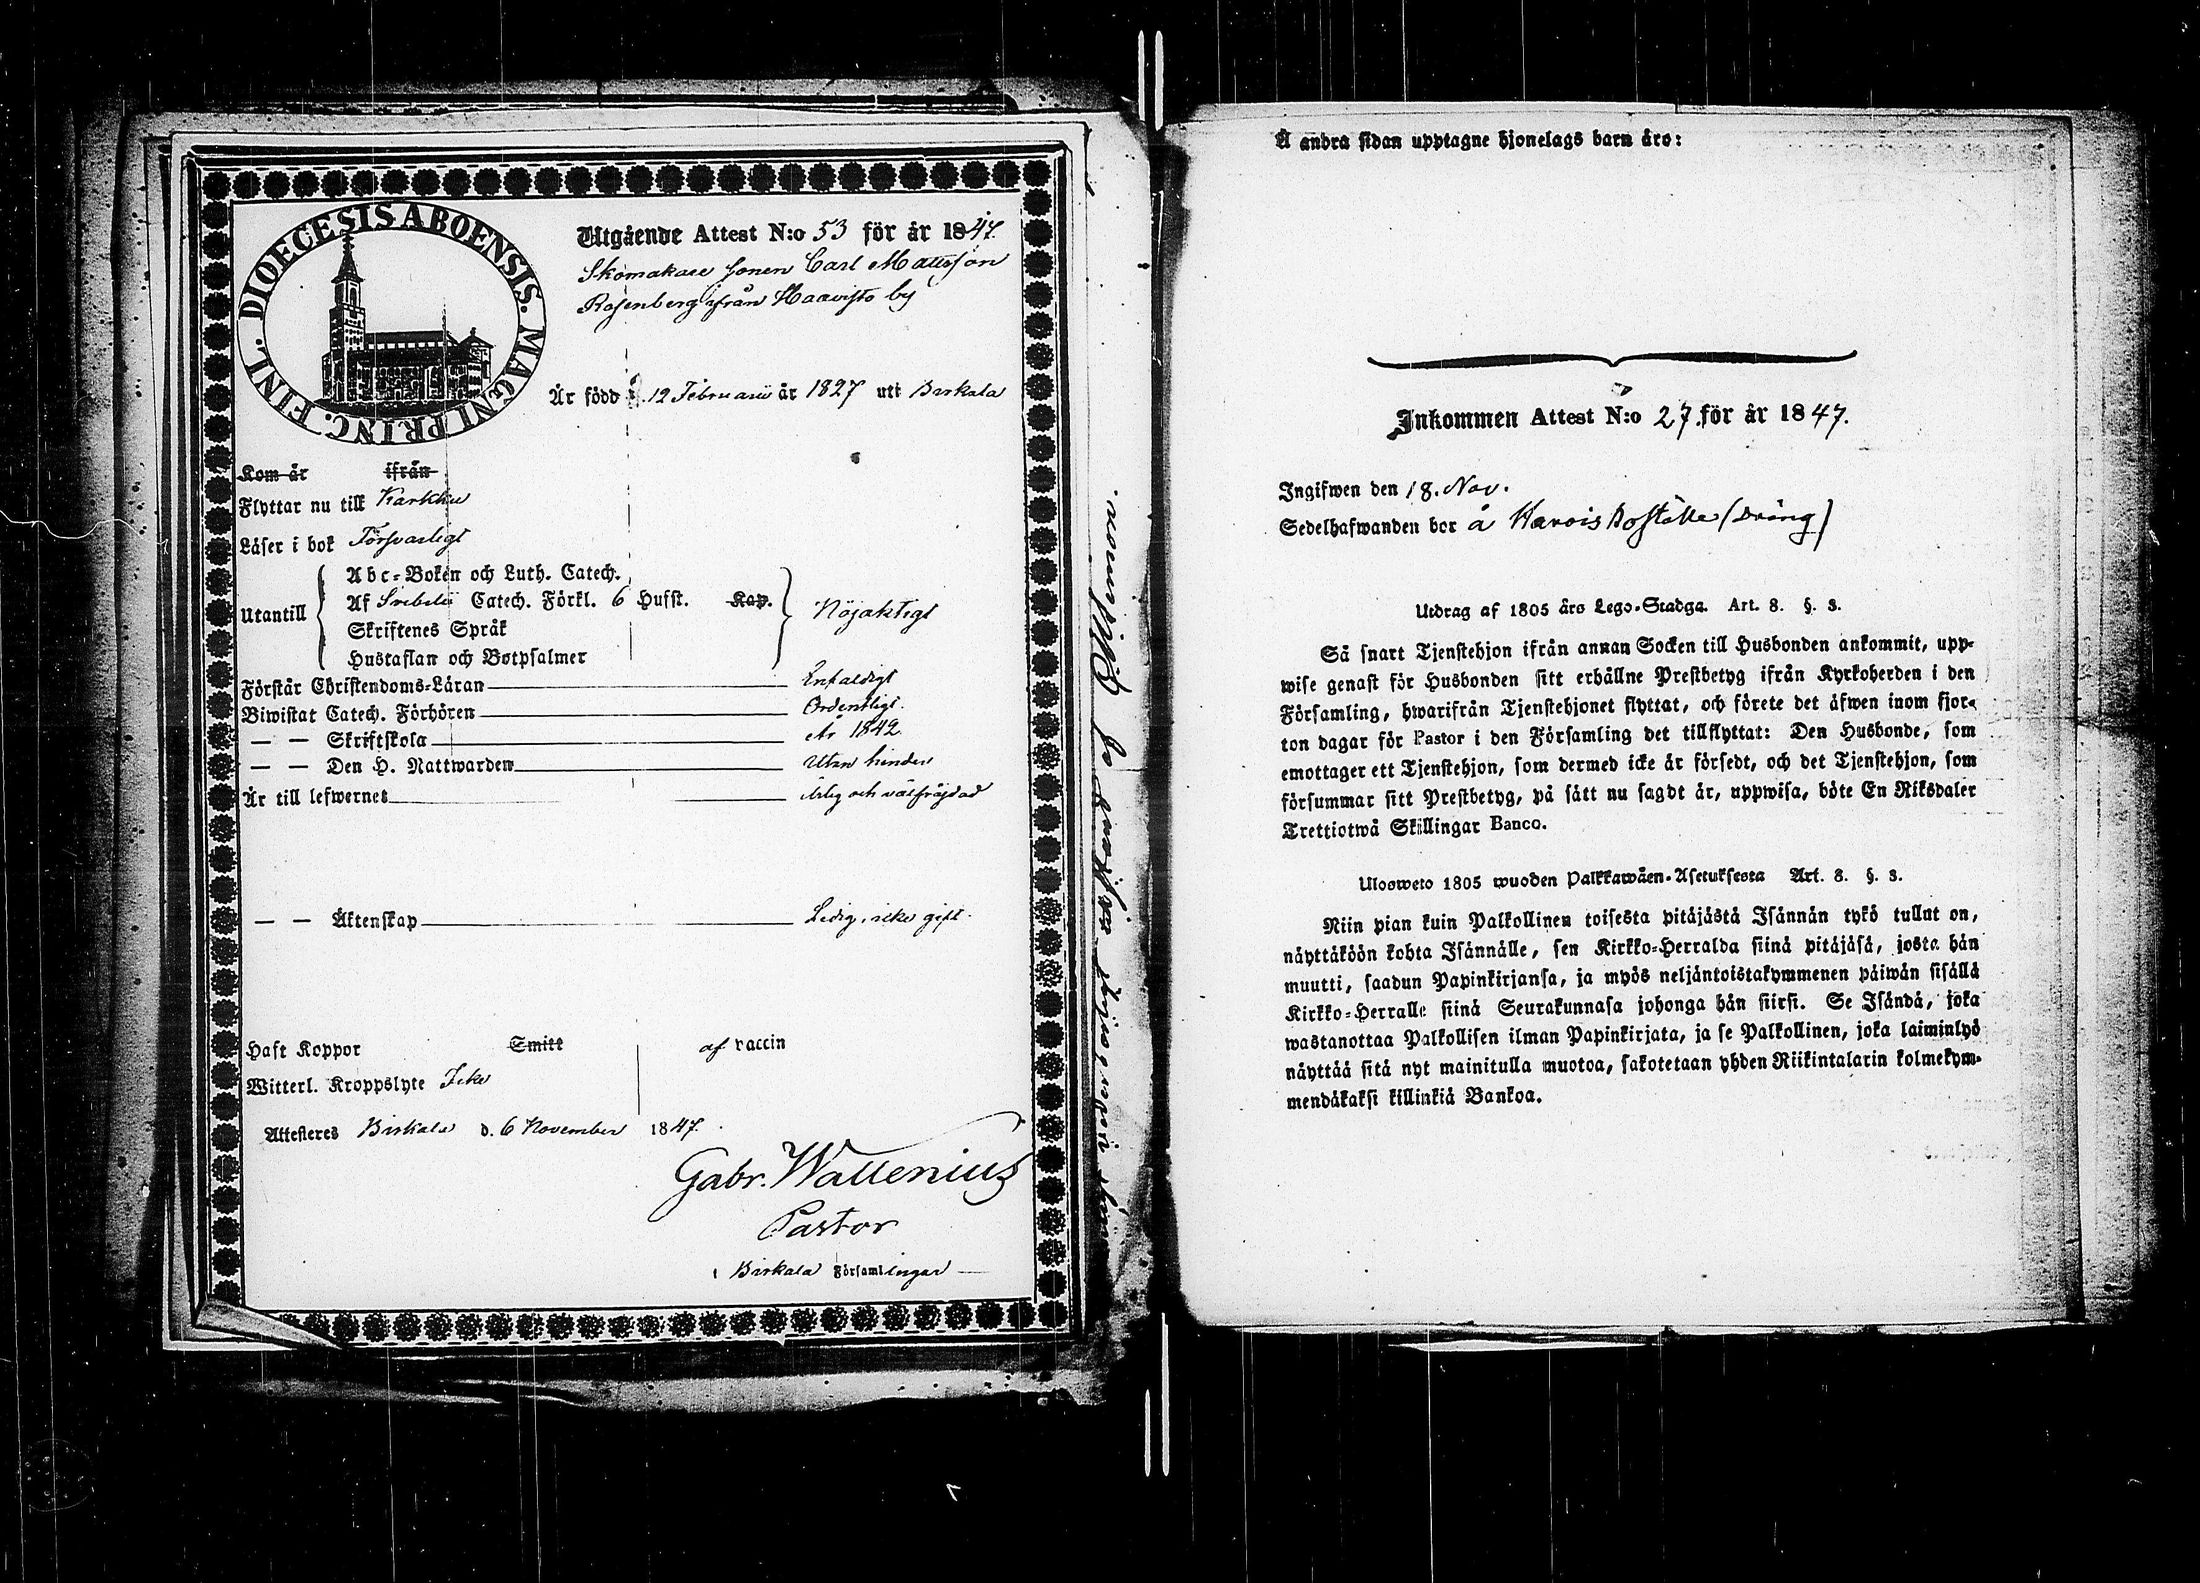 DIOECESIS ABOENSIS. MAGNI PRINC. FINL.
Utgående Attest N:o 53 för år 1847.
Skomakare sonen Carl Mattsson
Rosenberg ifrån Haavisto by
Är född d. 12 Februarii år 1827 uti Birkala
Kom år ifrån
Flyttar nu till Karkku
Läser i bok Försvarligt
Utantill
Abc-Boken och Luth. Catech.
Af Svebelii Catech. Förkl. 6 Hufst. Kap.
Skriftenes Språk
Hustaflan och Botpsalmer
Nöjaktigt
Förstår Christendoms-Läran Enfaldigt
Biwistat Catech. Förhören Ordentligt.
— — Skriftskola År 1842
— — Den H. Nattwarden Utan hinder
Är till lefwernet Ärlig och välfräjdad
— — Äktenskap Ledig, icke gift.
Haft Koppor Smitt af vaccin
Witterl. Kroppslyte Icke
Attesteres Birkala d. 6 November 1847.
Gabr. Wallenius
Pastor
i Birkala Församlingar
Å andra sidan upptagne hjonelags barn äro:
Inkommen Attest N:o 27 för år 1847.
Ingifwen den 18. Nov.
Sedelhafwanden bor å Harois Boställe (Dräng)
Utdrag af 1805 års Lego-Stadga. Art. 8. §. 3.
Så snart Tjenstehjon ifrån annan Socken till Husbonden ankommit, upp-
wise genast för Husbonden sitt erhållne Prestbetyg ifrån Kyrkoherden i den
Församling, hwarifrån Tjenstehjonet flyttat, och förete det äfwen inom fjor-
ton dagar för Pastor i den Församling det tillflyttat: Den Husbonde, som
emottager ett Tjenstehjon, som dermed icke är försedt, och det Tjenstehjon, som
försummar sitt Prestbetyg, på sätt nu sagdt är, uppwisa, böte En Riksdaler
Trettiotwå Skillingar Banco.
Ulosweto 1805 wuoden Palkkawäen-Asetuksesta Art. 8. §. 3.
Niin pian kuin Palkollinen toisesta pitäjästä Isännän tykö tullut on,
näyttäköön kohta Isännälle, sen Kirkko-Herralda siinä pitäjäsä, josta hän
muutti, saadun Papinkirjansa, ja myös neljäntoistakymmenen päiwän sisällä
Kirkko-Herralle siinä Seurakunnasa johonga hän siirsi. Se Isändä, joka
wastanottaa Palkollisen ilman Papinkirjata, ja se Palkollinen, joka laiminlyö
näyttää sitä nyt mainitulla muotoa, sakotetaan yhden Riikintalarin kolmekym-
mendäkaksi killinkiä Bankoa.